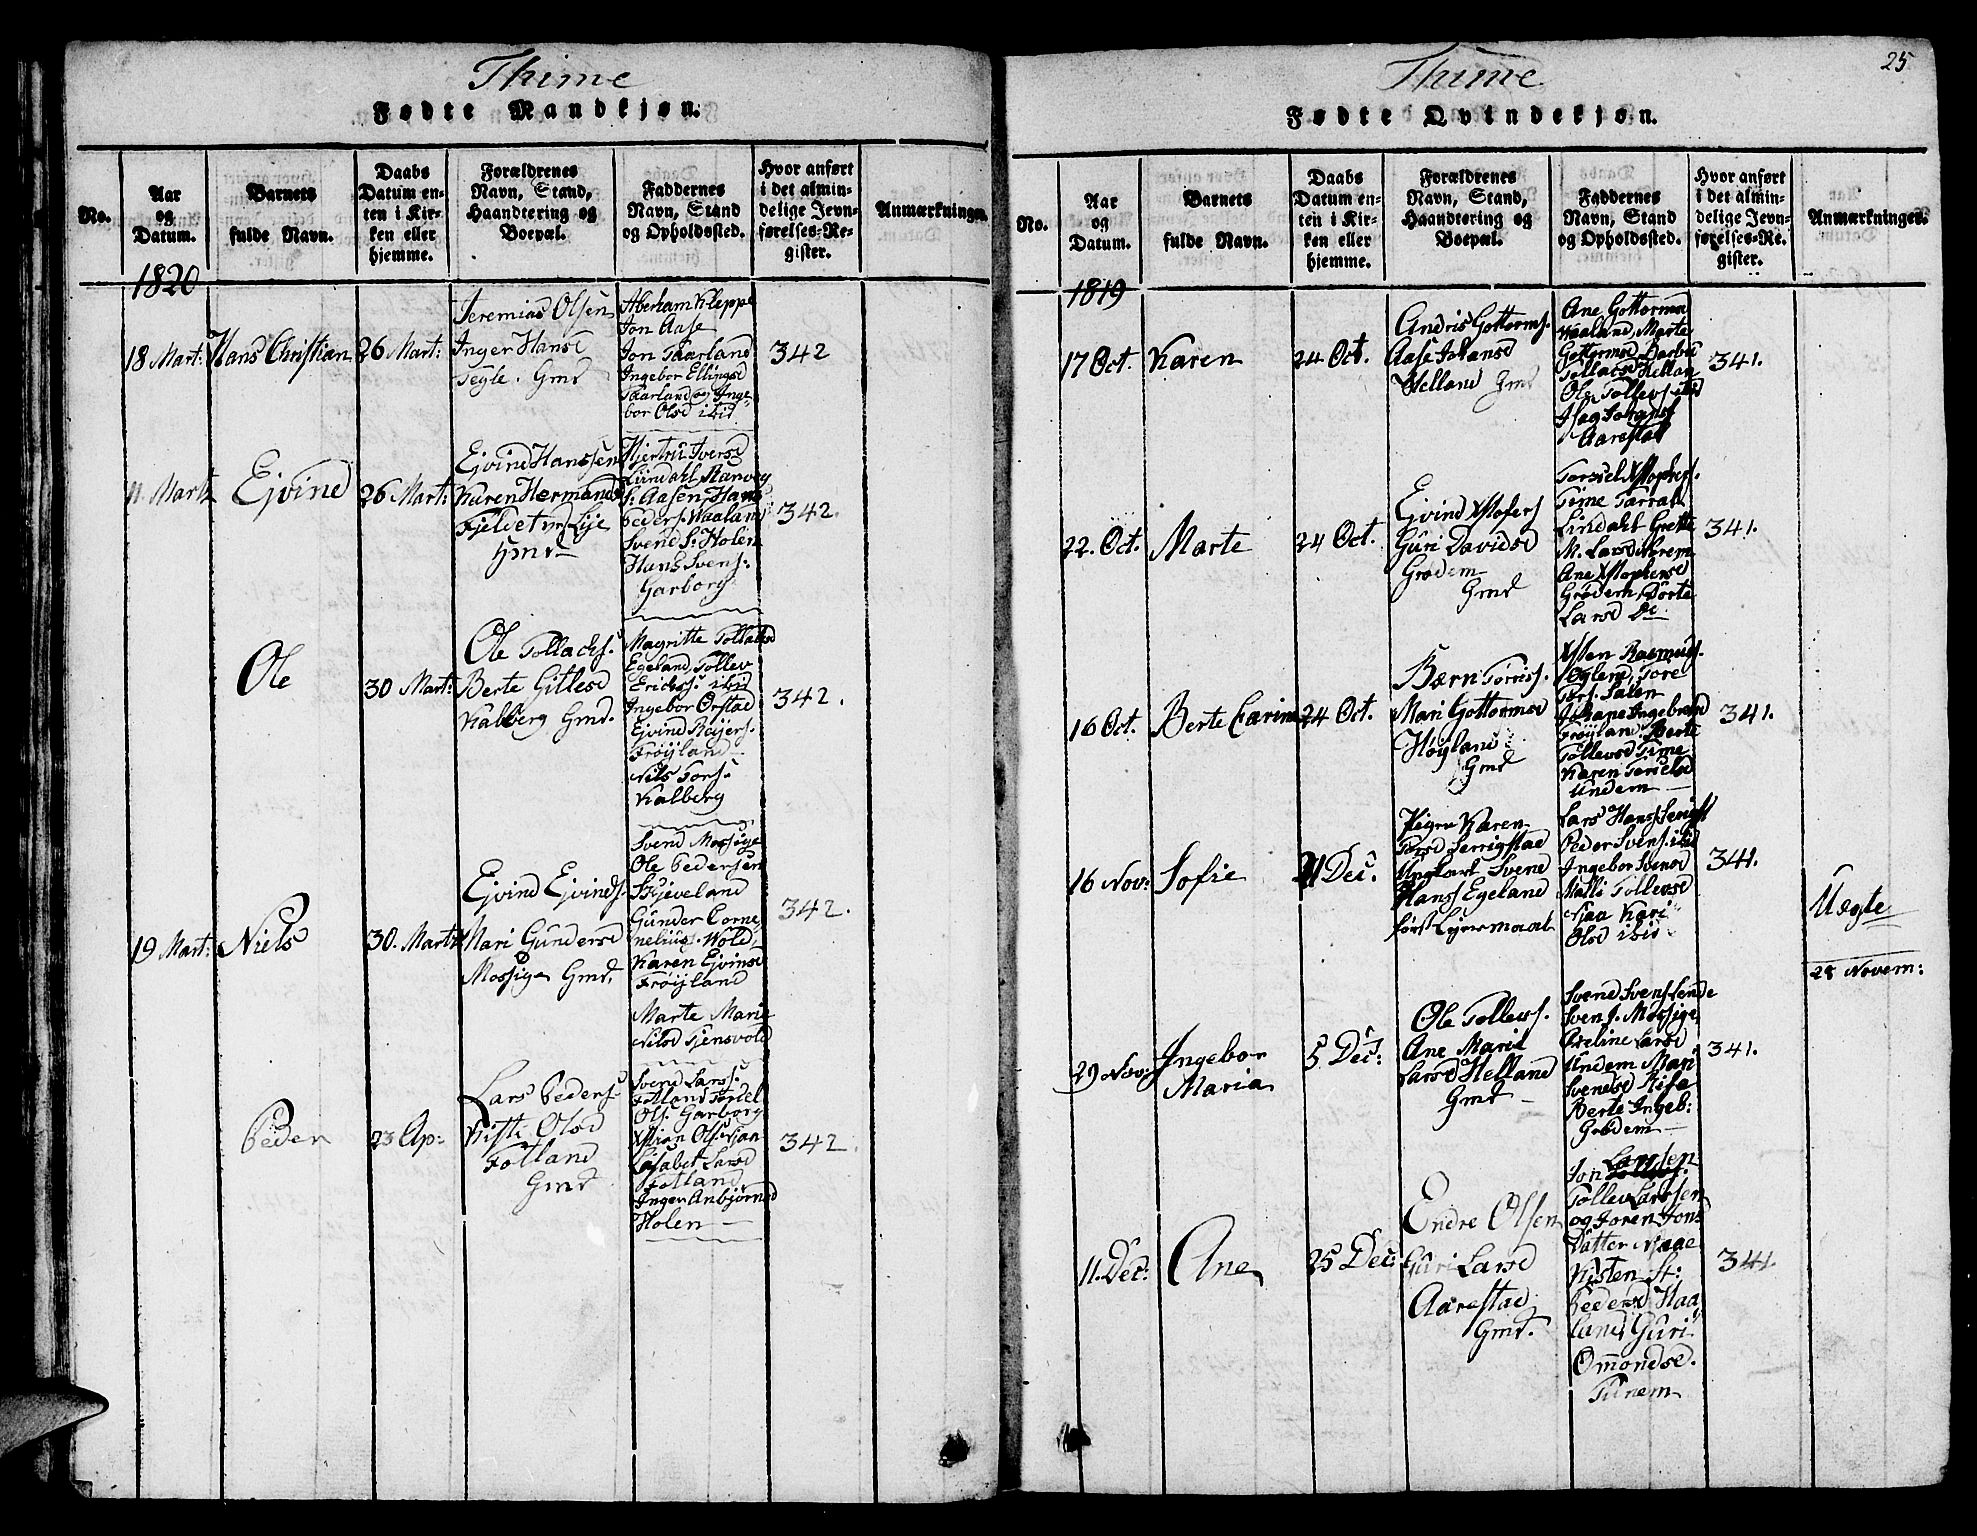 Thime
Fødte Mandkjøn.
No.
Aar og Datum.
Barnets fulde Navn.
Daabs Datum enten i Kirken eller hjemme.
Forældrenes Navn, Stand, Haandtering og Boepæl.
Faddernes Navn, Stand og Opholdssted.
Hvor anført i det almindelige Jevnførelses-Register.
Anmærkninger.
1820
18 Mart:
Hans Christian
26 Mart:
Jeremias Olsen
Inger Hansd
Tegle. Gmd
Aberham Kleppe
Jon Aase
Jon Taarland
Ingebor Ellingsd
Taarland og Inge-
bor Olsd ibid
342
11 Mart:
Ejvind
26 Mart:
Ejvind Hanssen
Karen Hermands
Fjeldet Lije
Gmd
Iversd
Lundahl Ranveg
S: Aasen Hans
Peders. Waaland
Svend S: Holen
Hans Svens:
Garborg
342.
Ole
30 Mart:
Ole Tollachs.
Berte Gitlesd
Kalberg Gmd.
Magritte Tollaksd
Egeland, Tollev
Erickss. ibid
Ingebor Ørstad
Ejvind Reijers.
Frøyland
Nils Tors.
Kalberg
342.
19 Mart:
Niels
30. Mart:
Ejvind Ejvinds.
Mari Gundersd
Mossige Gmd.
Svend Mossige
Ole Pedersen
Skjeveland
Gunder Corne-
nelius. Wold,
Karen Ejvinsd
Frøyland
Marte Marie
Nilsd Tjensvold
342.
Peder
23 Ap:
Lars Peders.
Kisti Olsd
Fotland
Gmd
Svend Larss.
Fotland Torkel
Ols. Garborg
Xstian Olsen
Lisabet Larsd
Fotland
Inger Anbjørnsd
Holen
342.
Thime
25
Fødte Qvindekjøn.
No.
Aar og Datum.
Barnets fulde Navn.
Daabs Datum enten i Kirken eller hjemme.
Forældrenes Navn, Stand, Haandtering og Boepæl.
Faddernes Navn, Stand og Opholdssted.
Hvor anført i det almindelige Jevnførelses-Register.
Anmærkninger.
1819
17 Oct.
Karen
24 Oct.
Andris Gottorms.
Aase Johansd
Helland Gmd
Ane Gottormsd
Waaland, Marte
Gottormsd
Ole Tollevs. ibid
Aarestad
341.
22. Oct.
Marte
24 Oct.
Ejvind Xstofers
Guri Davidsd
Grødem
Gmd
Time
Lindahl Grette
M. Larsd
Ane Xstophersd
Grødem, Dorte
Larsd
341.
16 Oct.
Berte Carine
24 Oct.
Bærn Torriss.
Mari Gottormsd
Høyland
Gmd
Xsten Rasmuds.
Tore
Tors. Salen
Frøyland Berte
Tollevsd Time
Karen
Undem
341.
16 Nov:
Sofie
Dec.
Pigen Karen
Serrigstad
Ungkarl Svend
Hanss Egeland
først Lejermaal
Lars Hanss
Peder Svens. ibid
Ingebor Svensd
Malli Tollevsd
Njaa Kari
Olsd ibid
341.
Uægte
28 Novem:
29 Nov:
Ingebor
Maria
5 Dec:
Ole Tollevs.
Ane Marie
Larsd Helland
Gmd
Svend Svens
Svens. Mossige
Larsd
Undem Mari
Svendsd
Berte Ingeb:
Grødem
341.
11. Dec:
Ane
25 Dec:
Endre Olsen
Guri Larsd
Aarestad
Gmd.
Jon Larsen
Tollev Larssen
og Joren Jons
Datter Njaae
Kisten St:
Pedersd Haa
land Guri
Omondsd.
Tunem
341.